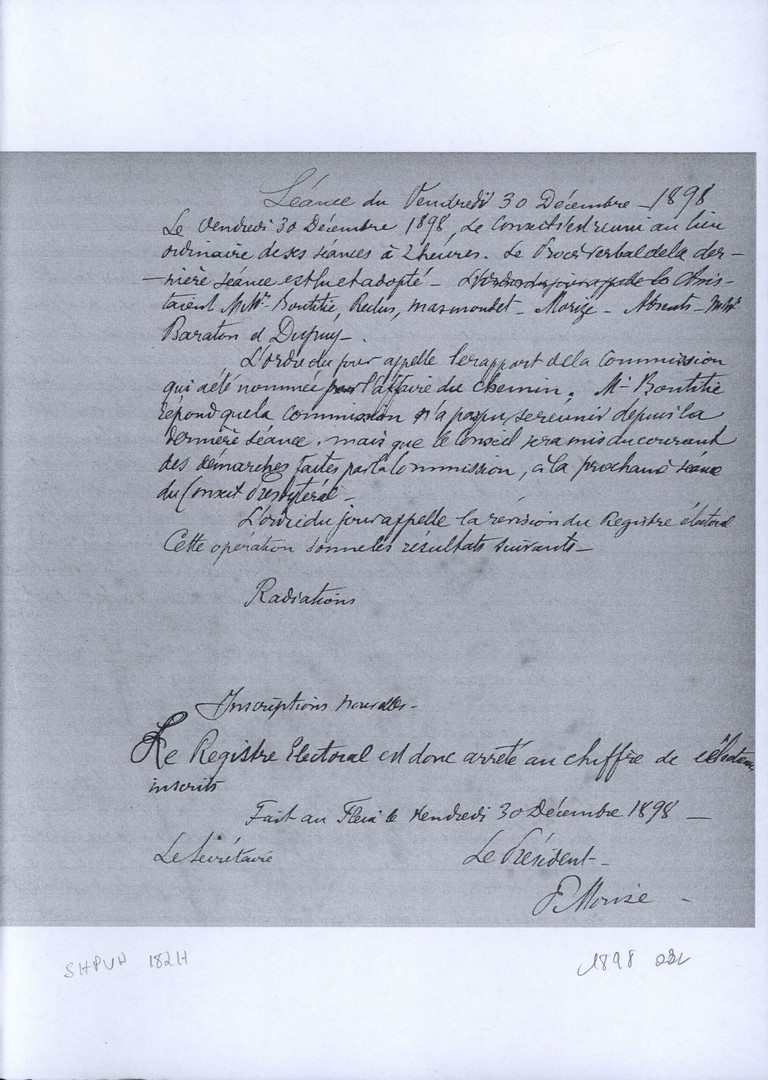 Séance du Vendredi 30 Décembre - 1898
Le Vendredi 30 Décembre 1898, Le Conseil s'est reuni au lieu
ordinaire de ses séances à 2 heures. Le Procès verbal de la der-
-nière séance est lu et adopté - L'ordre du jour appelle la Assis-
taient MMrs Bontitie, Reclus, Marmondet - Morize - Absents - MMrs
Baraton et Dupuy -
L'ordre du jour appelle le rapport de la Commission
qui a été nommée pour l'affaire du Chemin. Mr Bontitie
répond que la Commission n'a pas pu se reunir depuis la
dernière séance. mais que le Conseil sera mis au courant
des démarches faites par la Commission, à la prochaine séance
du Conseil Presbytéral -
L'ordre du jour appelle la révision du Registre électoral
Cette opération donne les résultats suivants -
Radiations
Inscriptions nouvelles -
Le Registre Electoral est donc arrêté au chiffre de électeurs
inscrits
Fait au Fleix le Vendredi 30 Décembre 1898 -
Le Secrétaire Le Président -
Morize -
SHPVD 182H 1898